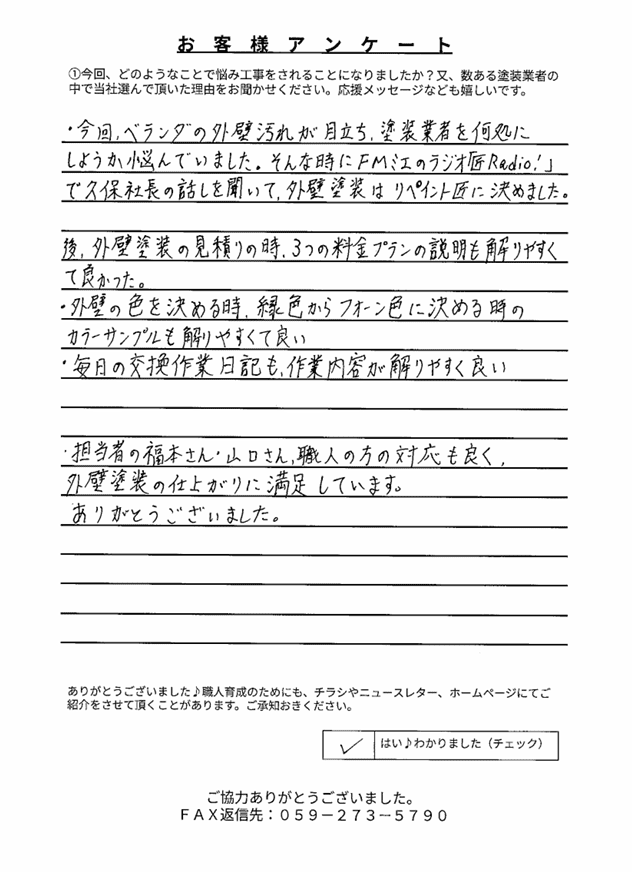 お客様アンケート
①今回、どのようなことで悩み工事をされることになりましたか？又、数ある塗装業者の
中で当社選んで頂いた理由をお聞かせください。応援メッセージなども嬉しいです。
・今回、ベランダの外壁汚れが目立ち、塗装業者を何処に
しようか悩んでいました。そんな時にFMミエのラジオ匠Radio！」
で久保社長の話しを聞いて、外壁塗装はリペイント匠に決めました。
後、外壁塗装の見積りの時、3つの料金プランの説明も解りやすく
て良かった。
・外壁の色を決める時、緑色からフォーン色に決める時の
カラーサンプルも解りやすくて良い
・毎日の交換作業日記も、作業内容が解りやすく良い
・担当者の福本さん・山口さん、職人の方の対応も良く、
外壁塗装の仕上がりに満足しています。
ありがとうございました。
ありがとうございました♪職人育成のためにも、チラシやニュースレター、ホームページにてご
紹介をさせて頂くことがあります。ご承知おきください。
✓ はい♪わかりました（チェック）
ご協力ありがとうございました。
ＦＡＸ返信先：０５９－２７３－５７９０